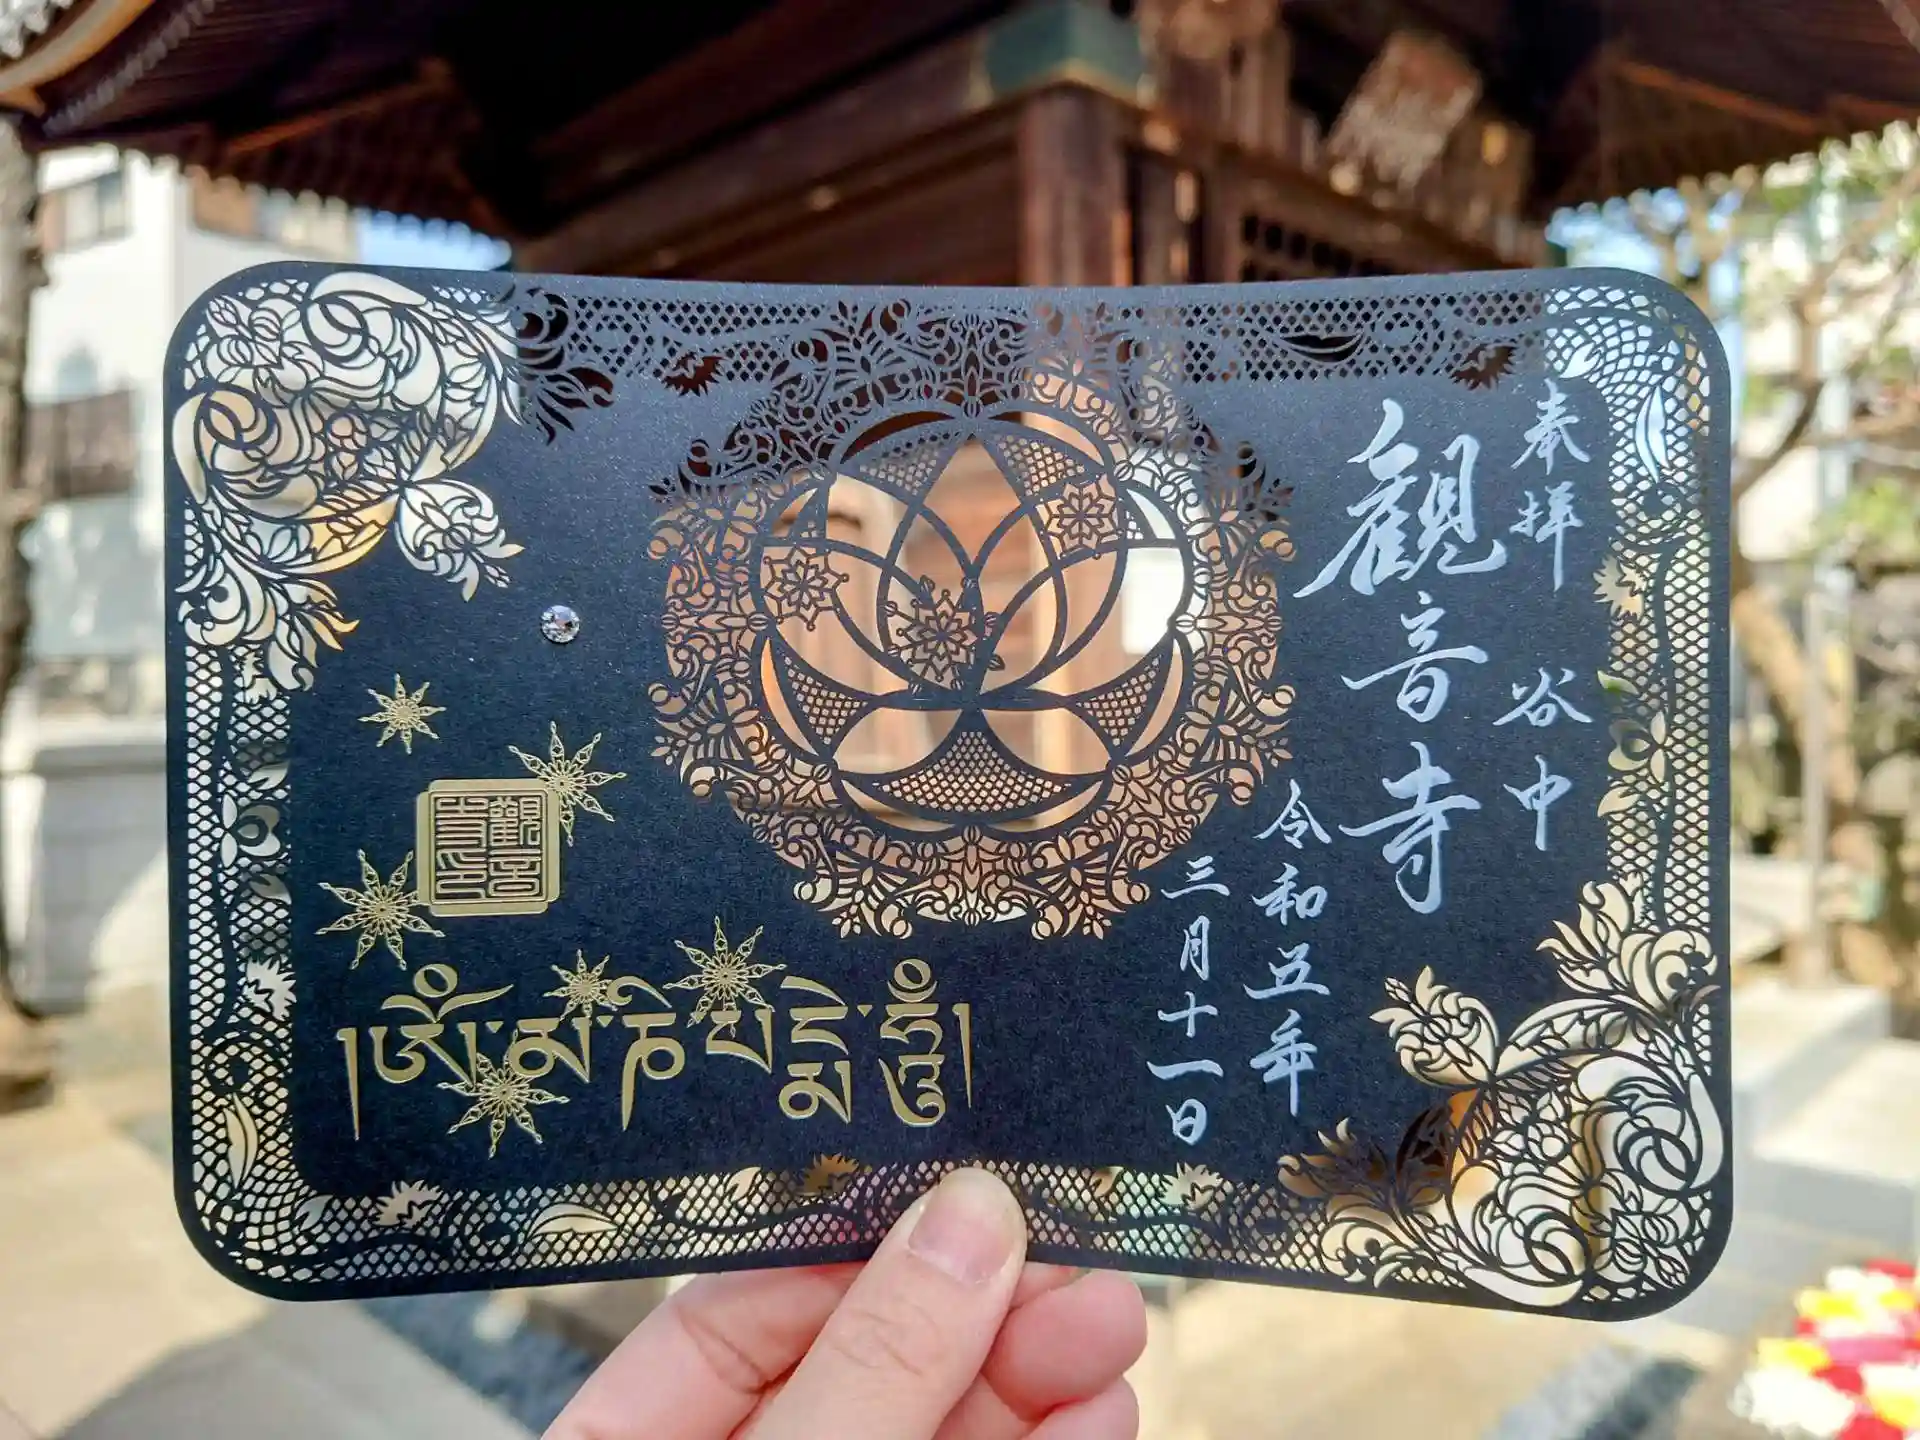 奉拝 谷中
觀音寺
令和五年
三月十一日
觀音
寺印
།ༀ་མ་ཎི་པདྨེ་ཧཱུྃ།